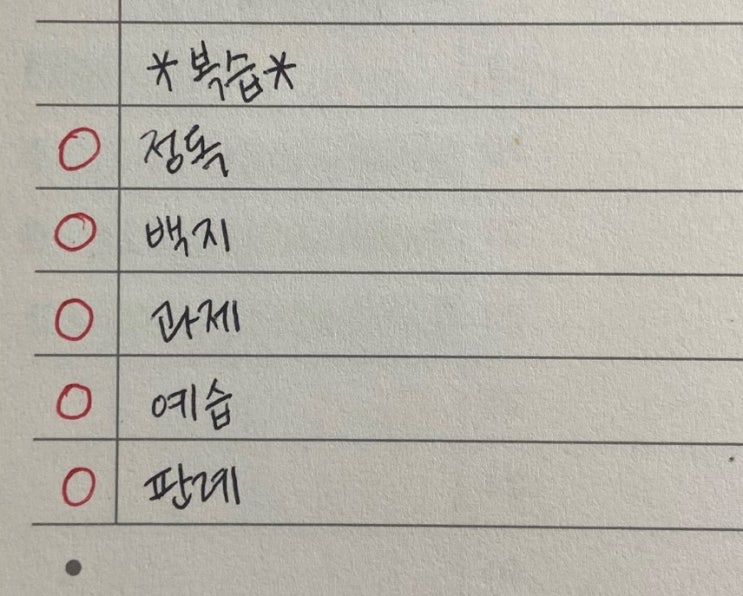 *복습*
○ 정독
○ 백지
○ 과제
○ 예습
○ 판례